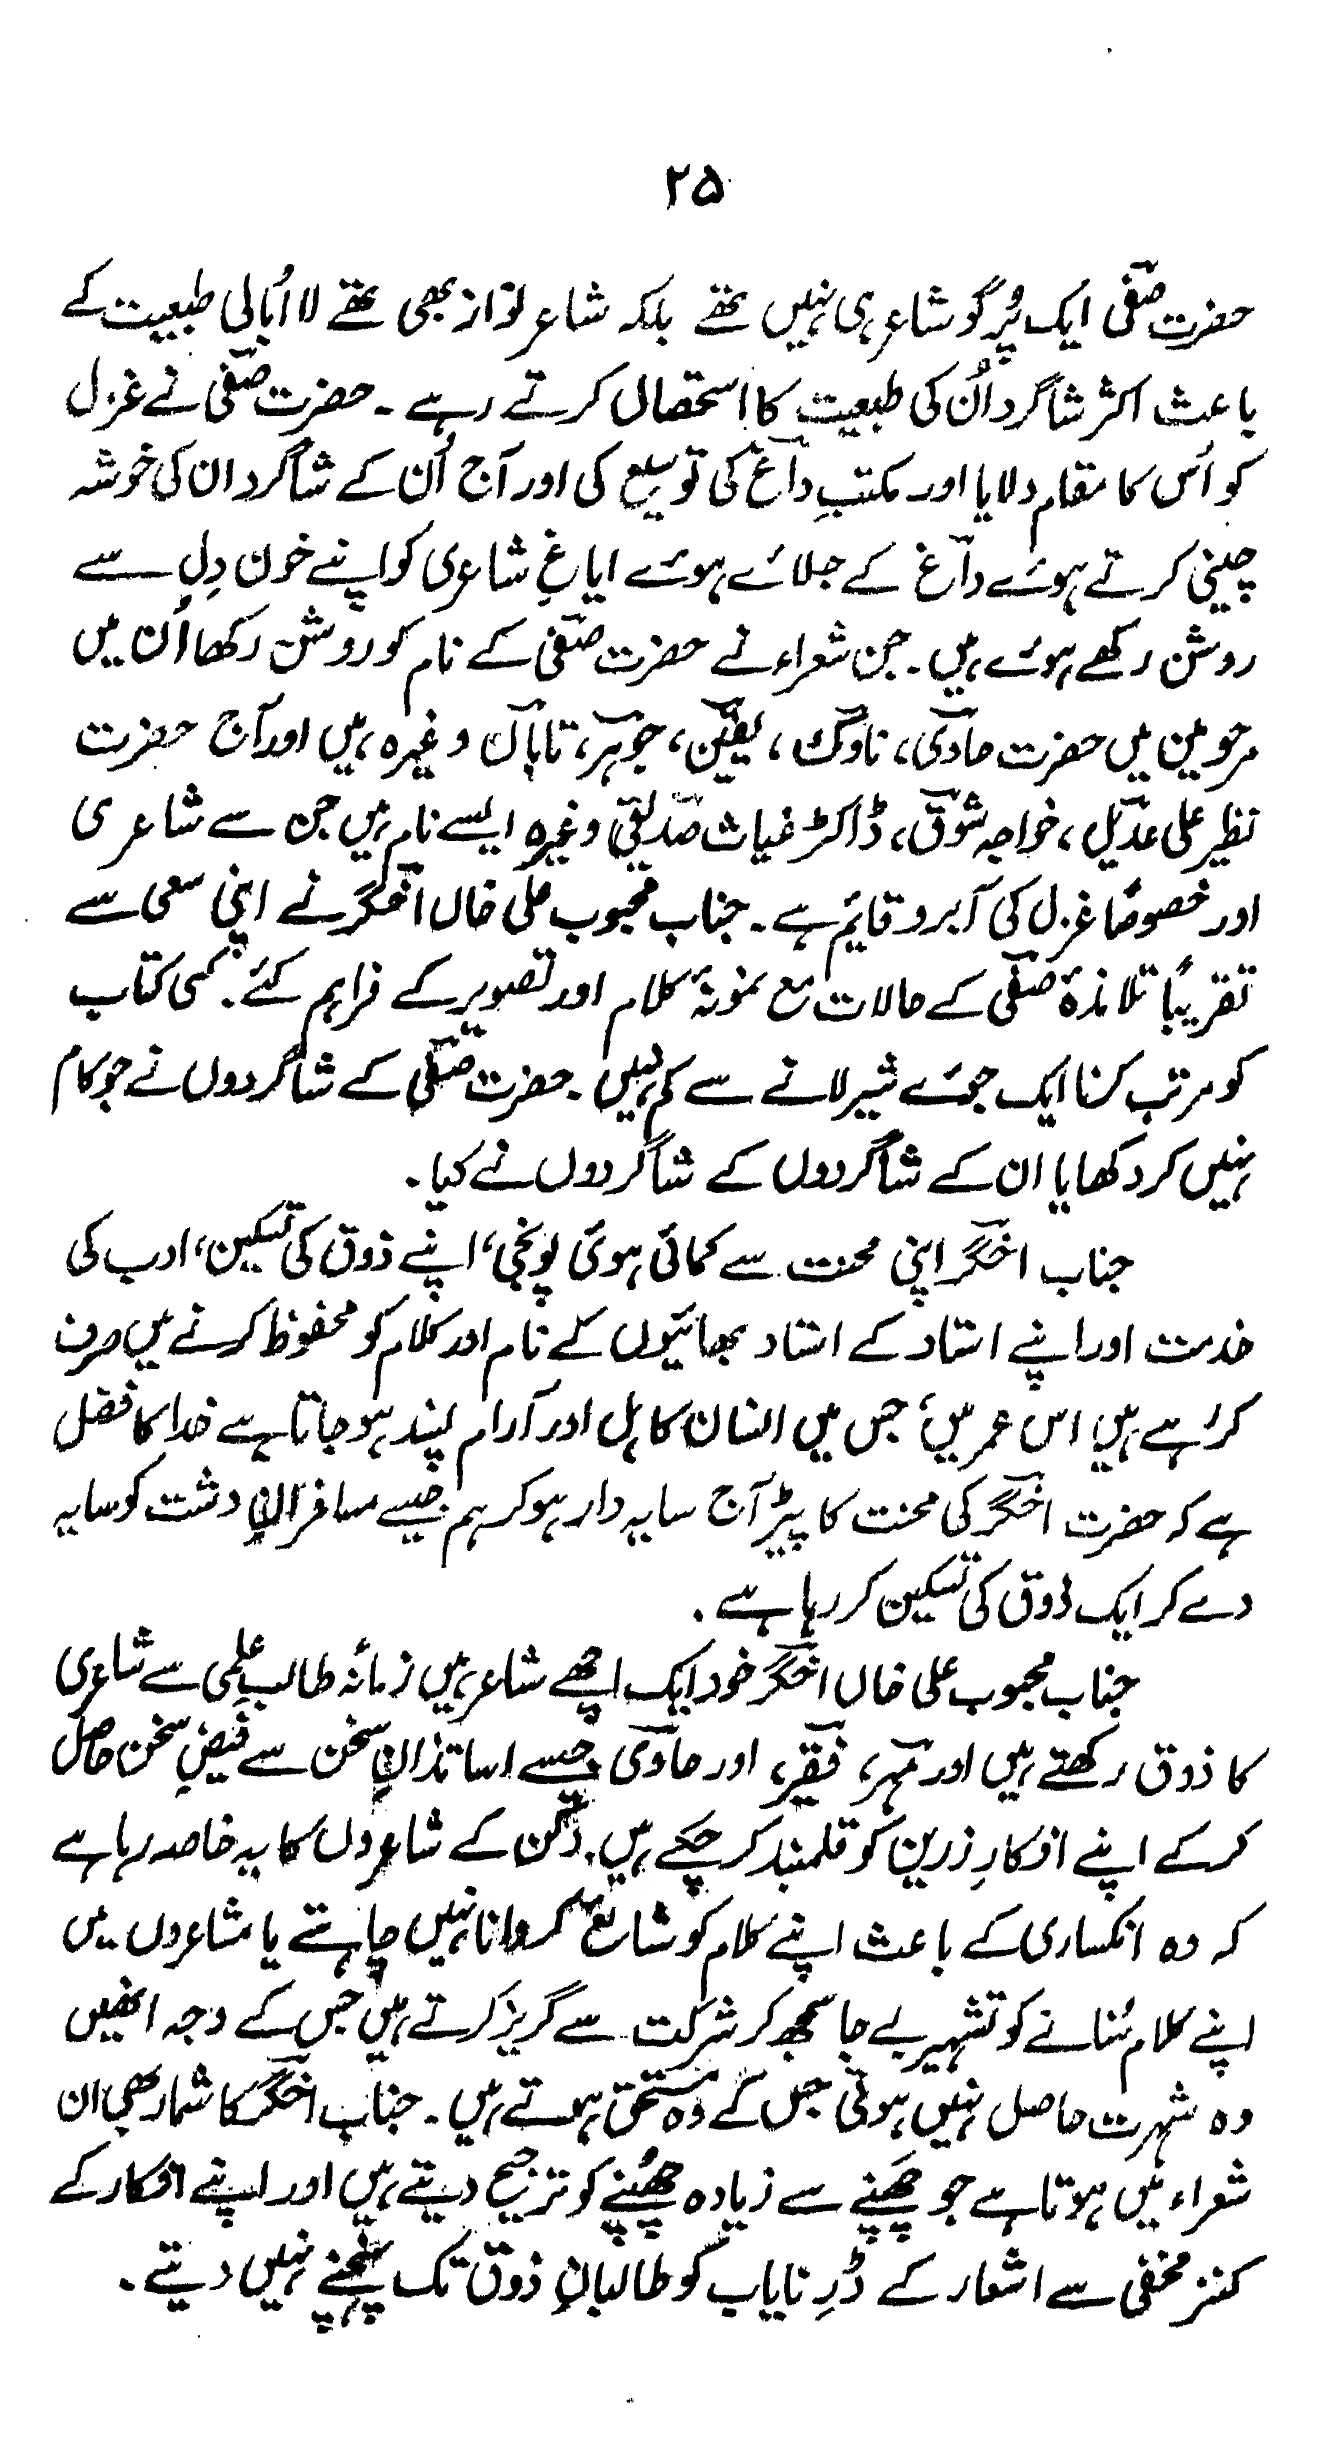 ۲۵
حضرت صفؔی ایک پُر گو شاعر ہی نہیں تھے بلکہ شاعر نواز بھی تھے لا اُبالی طبیعت کے
باعث اکثر شاگرد اُن کی طبیعت کا استحصال کرتے رہے ۔ حضرت صفؔی نے غزل
کو اُس کا مقام دلایا اور مکتبِ داؔغ کی توسیع کی اور آج اُن کے شاگرد ان کی خوشہ
چینی کرتے ہوئے داؔغ کے جلائے ہوئے ایاغِ شاعری کو اپنے خون دِل سے
روشن رکھے ہوئے ہیں ۔ جن شعراء نے حضرت صفؔی کے نام کو روشن رکھا اُن میں
مرحومین میں حضرت حاوؔی، ناوکؔ، یقیؔن، جوہرؔ، تاباںؔ وغیرہ ہیں اور آج حضرت
نظیر علی عدیلؔ، خواجہ شوقؔ، ڈاکٹر غیاث صدیقیؔ وغیرہ ایسے نام ہیں جن سے شاعری
اور خصوصاً غزل کی آبرو قایم ہے ۔ جناب محبوب علی خاں اخگرؔ نے اپنی سعی سے
تقریباً تلامذۂ صفؔی کے حالات مع نمونۂ کلام اور تصویر کے فراہم کئے ۔ کسی کتاب
کو مرتب کرنا ایک جوئے شیر لانے سے کم نہیں ۔ حضرت صفؔی کے شاگردوں نے جو کام
نہیں کر دکھایا ان کے شاگردوں کے شاگردوں نے کیا ۔
جناب اخگرؔ اپنی محنت سے کمائی ہوئی پونجی، اپنے ذوق کی تسکین، ادب کی
خدمت اور اپنے استاد کے استاد بھائیوں کے نام اور کلام کو محفوظ کرنے میں صرف
کر رہے ہیں اس عمر میں، جس میں انسان کاہل اور آرام پسند ہو جاتا ہے خدا کا فضل
ہے کہ حضرت اخگرؔ کی محنت کا پیڑ آج سایہ دار ہو کر ہم جیسے مسافرانِ دشت کو سایہ
دے کر ایک ذوق کی تسکین کر رہا ہے ۔
جناب محبوب علی خاں اخگرؔ خود ایک اچھے شاعر ہیں زمانۂ طالبِ علمی سے شاعری
کا ذوق رکھتے ہیں اور مہرؔ، فقیرؔ، اور حاوؔی جیسے اساتذانِ سخن سے فیضِ سخن حاصل
کر کے اپنے افکارِ زرین کو قلمبند کر چکے ہیں ۔ دکن کے شاعروں کا یہ خاصہ رہا ہے
کہ وہ انکساری کے باعث اپنے کلام کو شائع کروانا نہیں چاہتے یا مشاعروں میں
اپنے کلام سُنانے کو تشہیر بے جا سمجھ کر شرکت سے گریز کرتے ہیں جس کے وجہ انھیں
وہ شہرت حاصل نہیں ہوتی جس کے وہ مستحق ہوتے ہیں ۔ جناب اخگرؔ کا شمار بھی ان
شعراء میں ہوتا ہے جو چَھپنے سے زیادہ چُھپنے کو ترجیح دیتے ہیں اور اپنے افکار کے
کنز مخفی سے اشعار کے دُرِ نایاب کو طالبانِ ذوق تک پہنچنے نہیں دیتے ۔